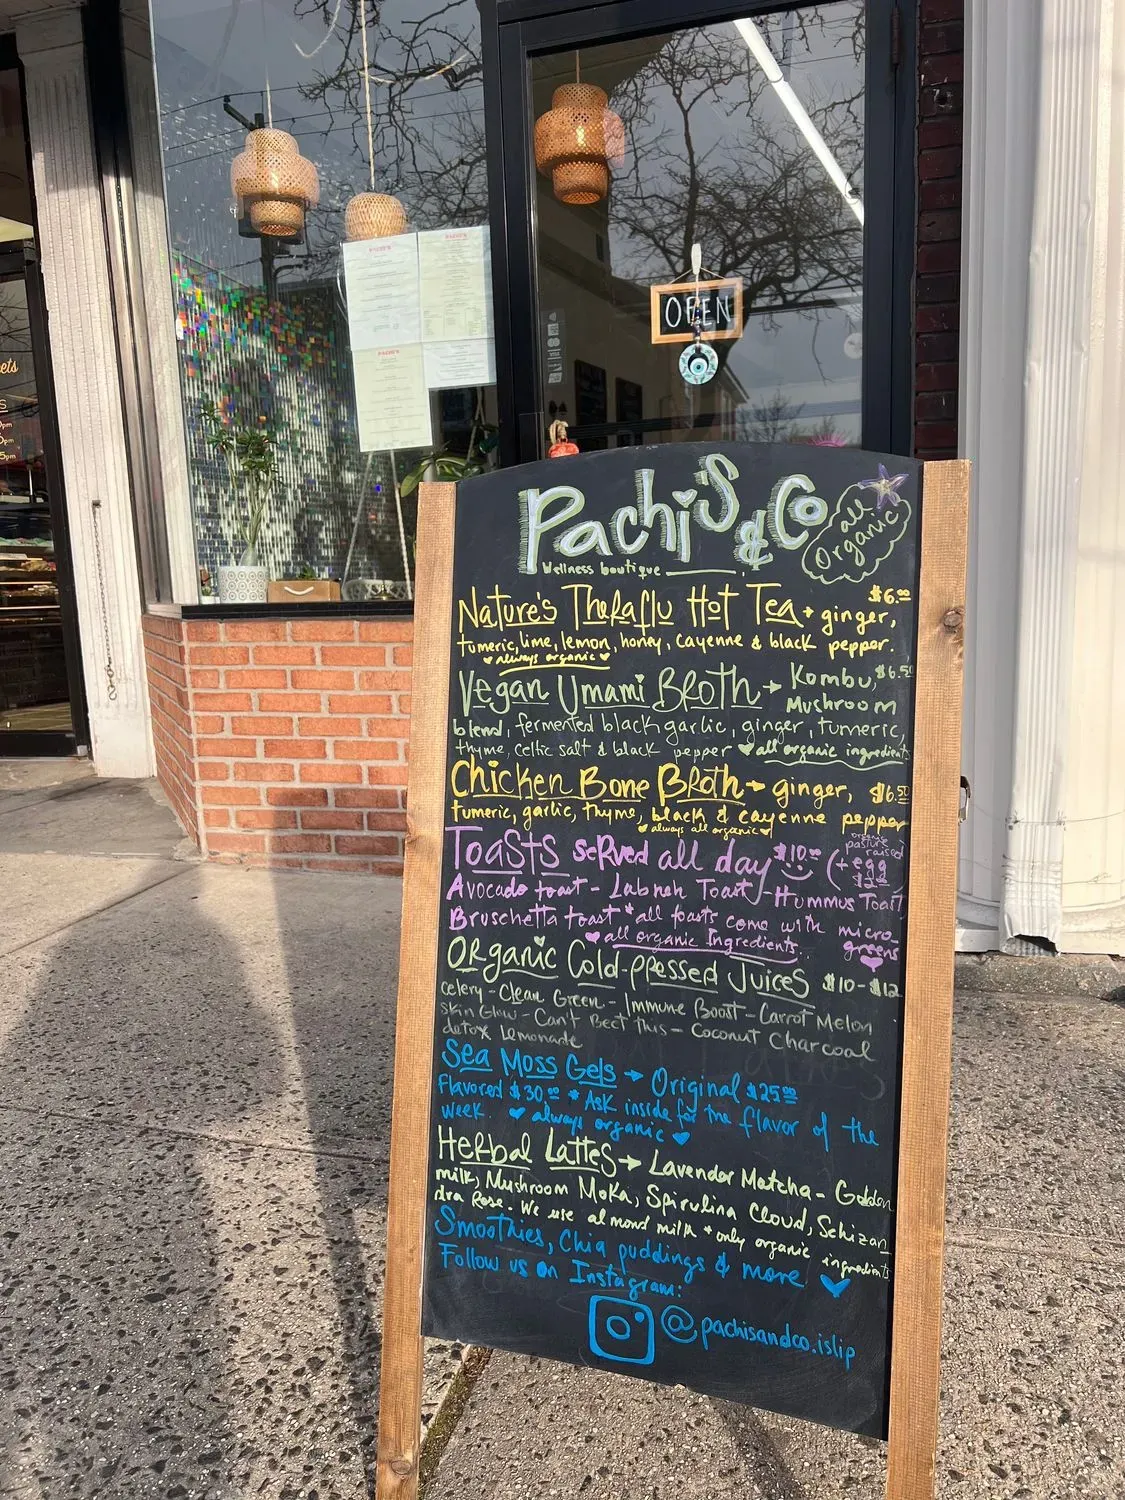 PACHI'S
PACHI'S
PACHI'S
OPEN
VISA
ets
Pachi's & Co
all
Organic
Wellness boutique
Nature's Theraflu Hot Tea → ginger, $6.00
tumeric, lime, lemon, honey, cayenne & black pepper.
♥ always organic ♥
Vegan Umami Broth → Kombu, $6.50
Mushroom
blend, fermented black garlic, ginger, tumeric,
thyme, celtic salt & black pepper ♥ all organic ingredients
Chicken Bone Broth → ginger, $6.50
tumeric, garlic, thyme, black & cayenne pepper
♥ always all organic ♥
Toasts served all day $10.00 (+ egg $2.00
organic
pasture
raised
Avocado toast - Labneh Toast - Hummus Toast
Bruschetta toast *all toasts come with micro-
greens
♥ all organic Ingredients..
Organic Cold-pressed Juices $10-$12
celery - Clean Green - Immune Boost - Carrot Melon
Skin Glow - Can't Beet This - Coconut Charcoal
detox Lemonade
Sea Moss Gels → Original $25.00
Flavored $30.00 * Ask inside for the flavor of the
week. ♥ always organic ♥
Herbal Lattes → Lavender Matcha - Golden
milk, Mushroom Moka, Spirulina Cloud, Schizan
dra Rose. We use almond milk + only organic ingredients
Smoothies, Chia puddings & more ♥
Follow us on Instagram:
@pachisandco.islip